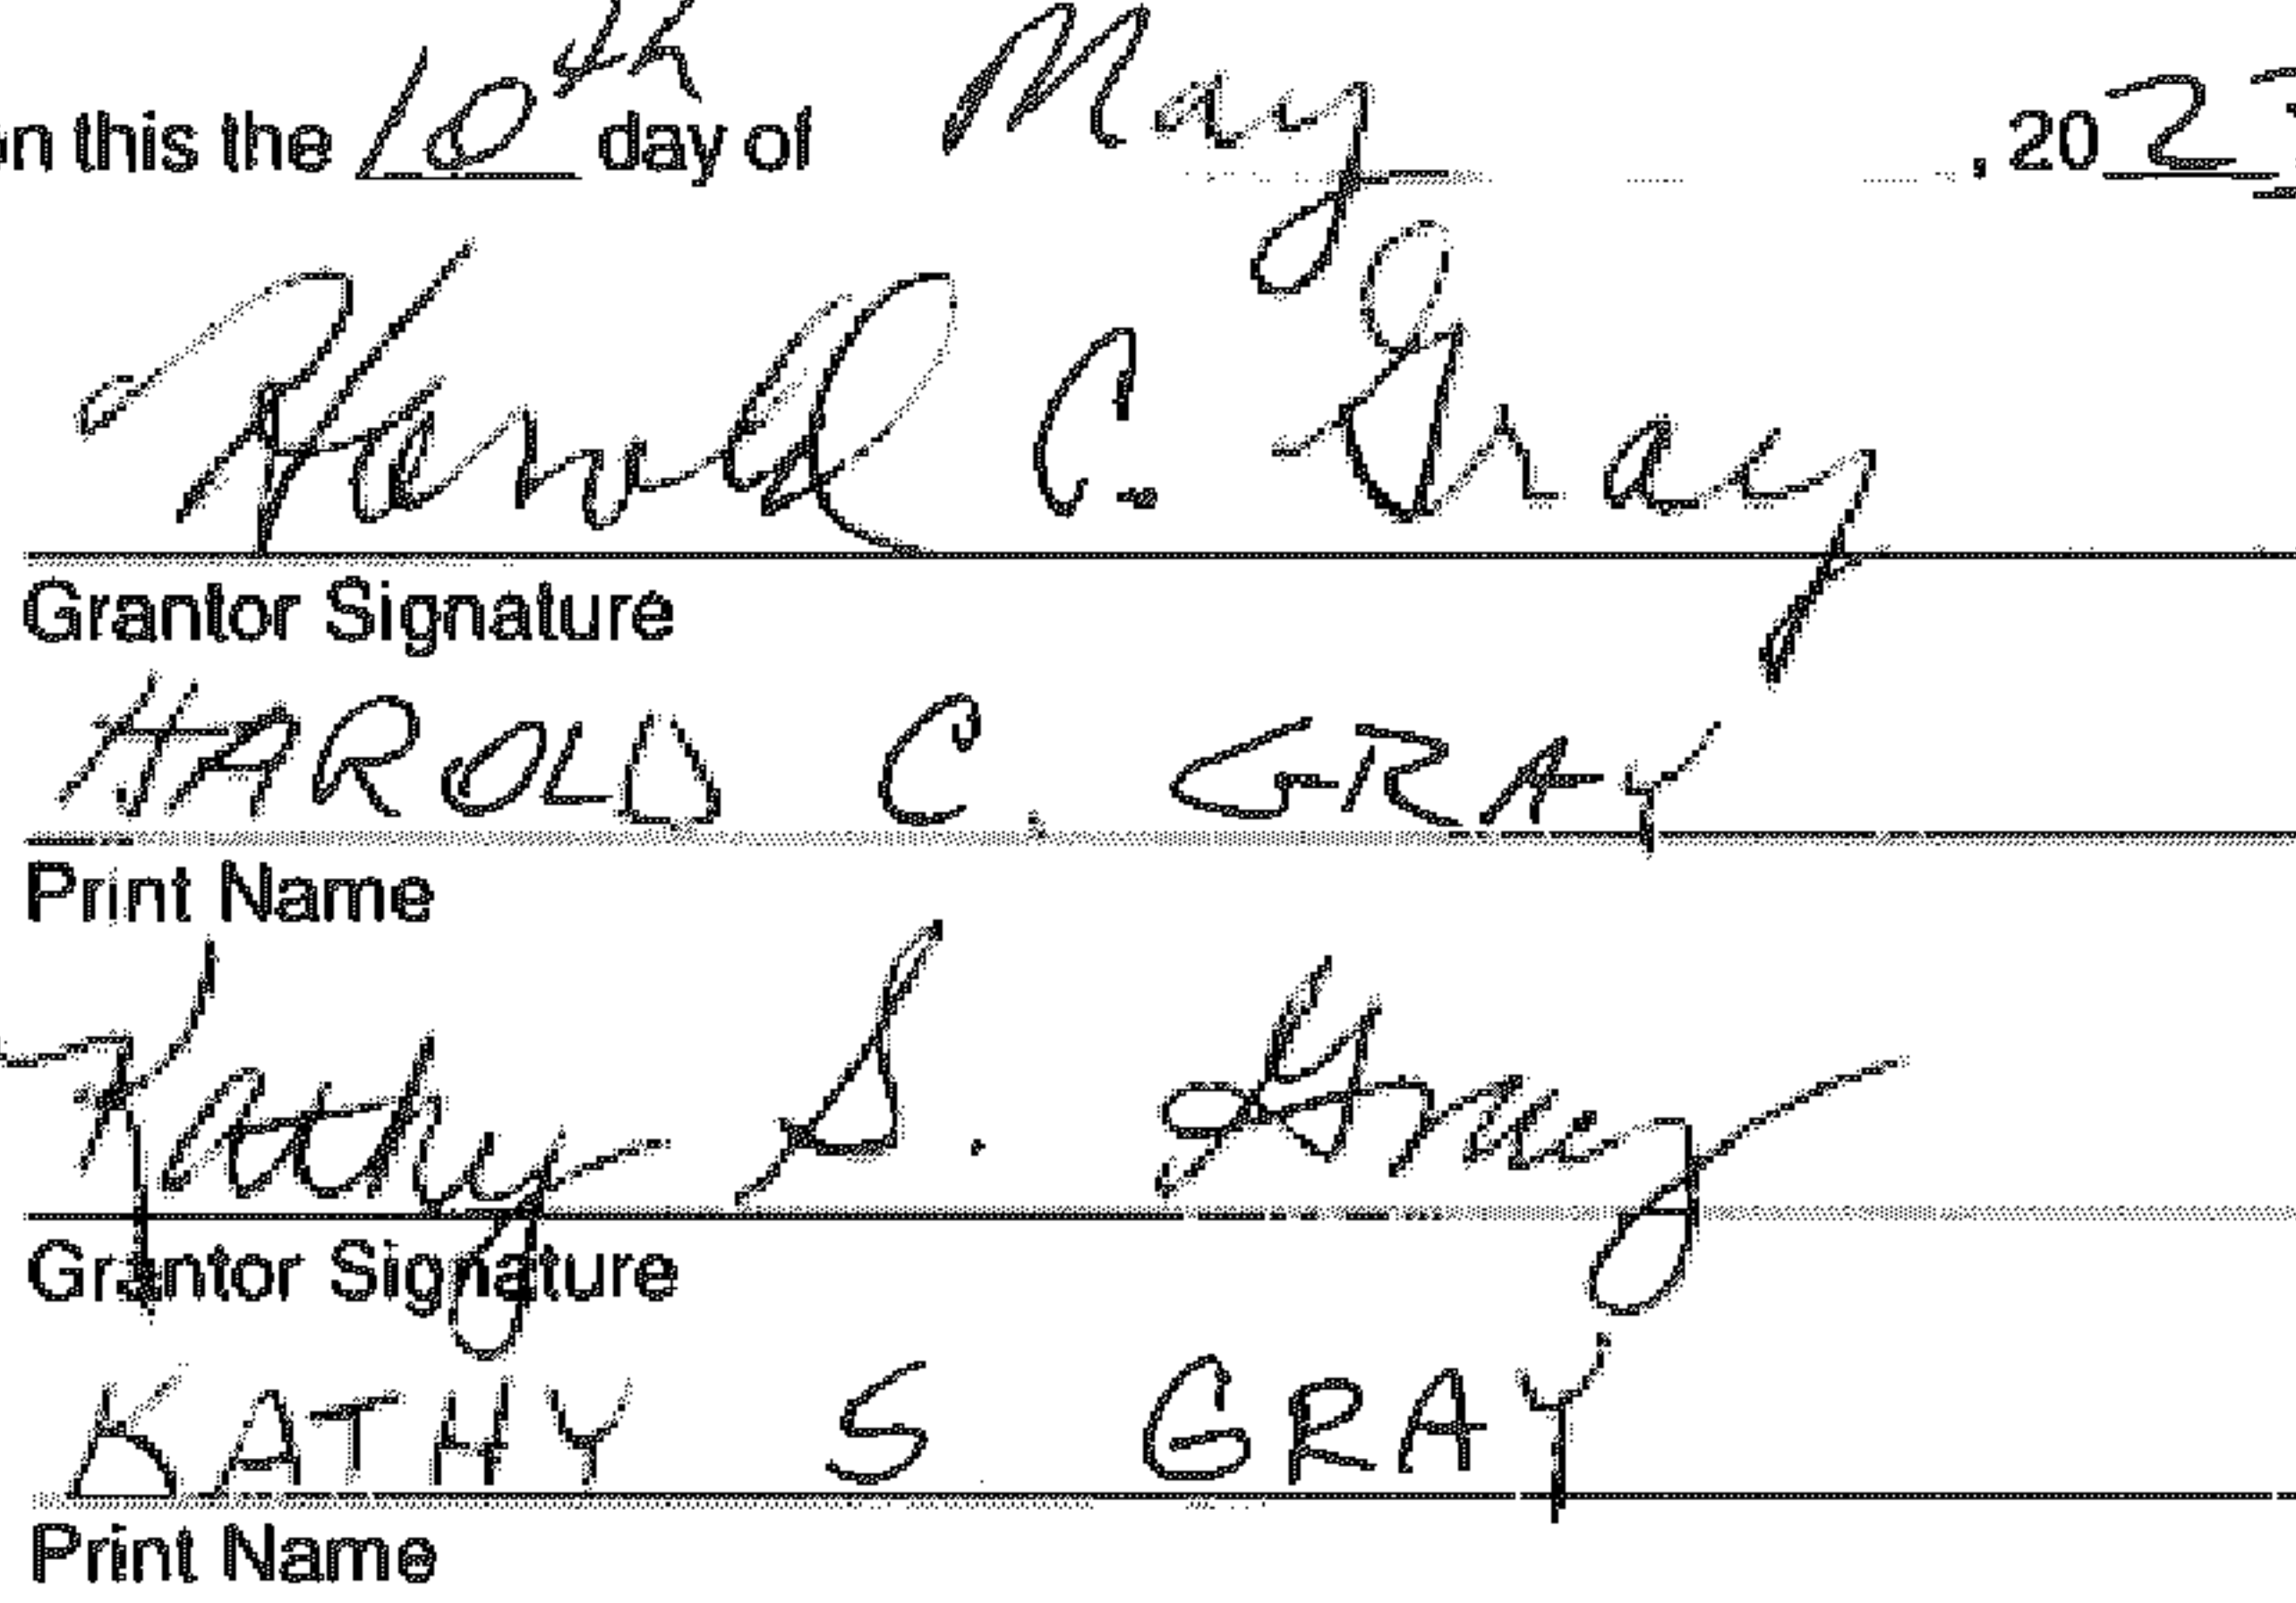 n this the 10th day of May, 2023
Harold C. Gray
Grantor Signature
HAROLD C. GRAY
Print Name
Kathy S. Gray
Grantor Signature
KATHY S GRAY
Print Name